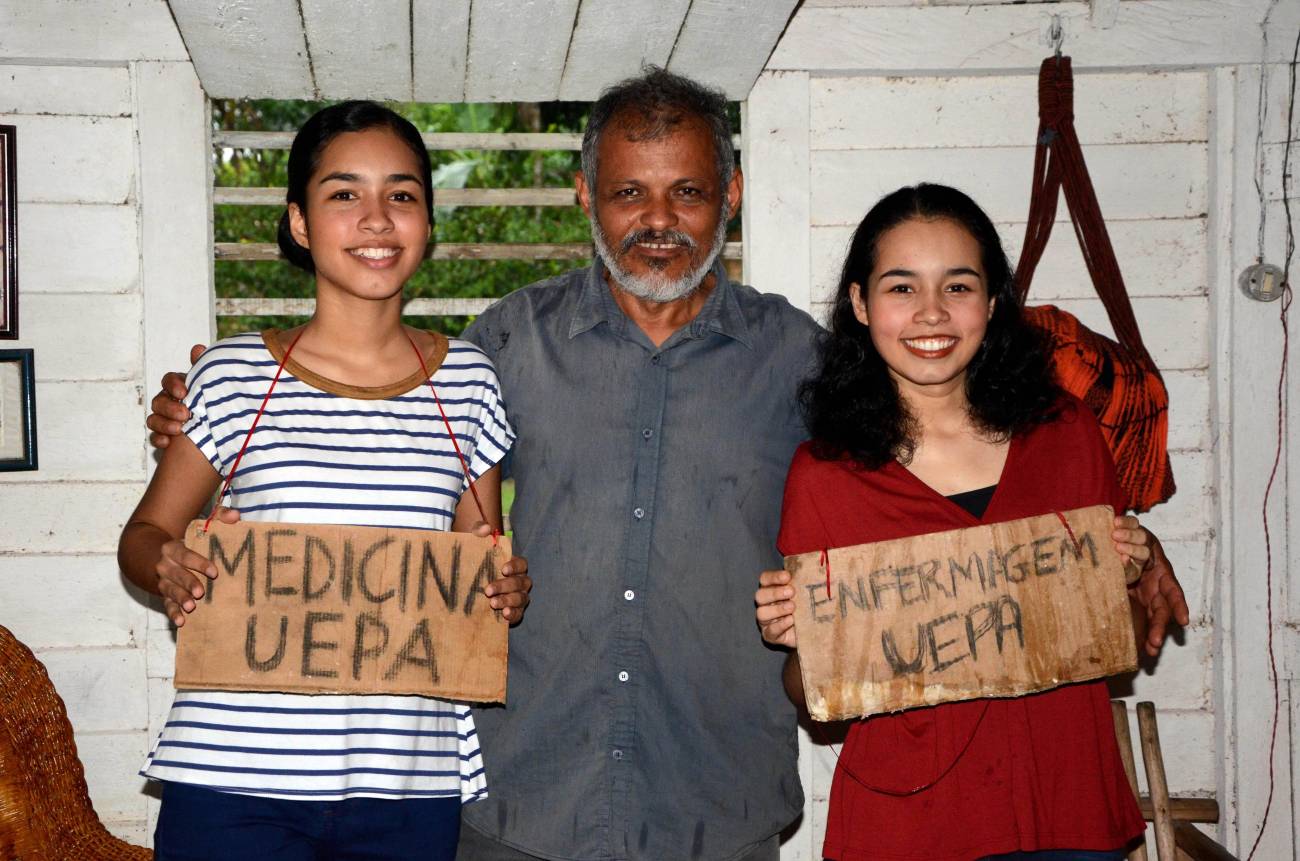 MEDICINA
UEPA
ENFERMAGEM
UEPA